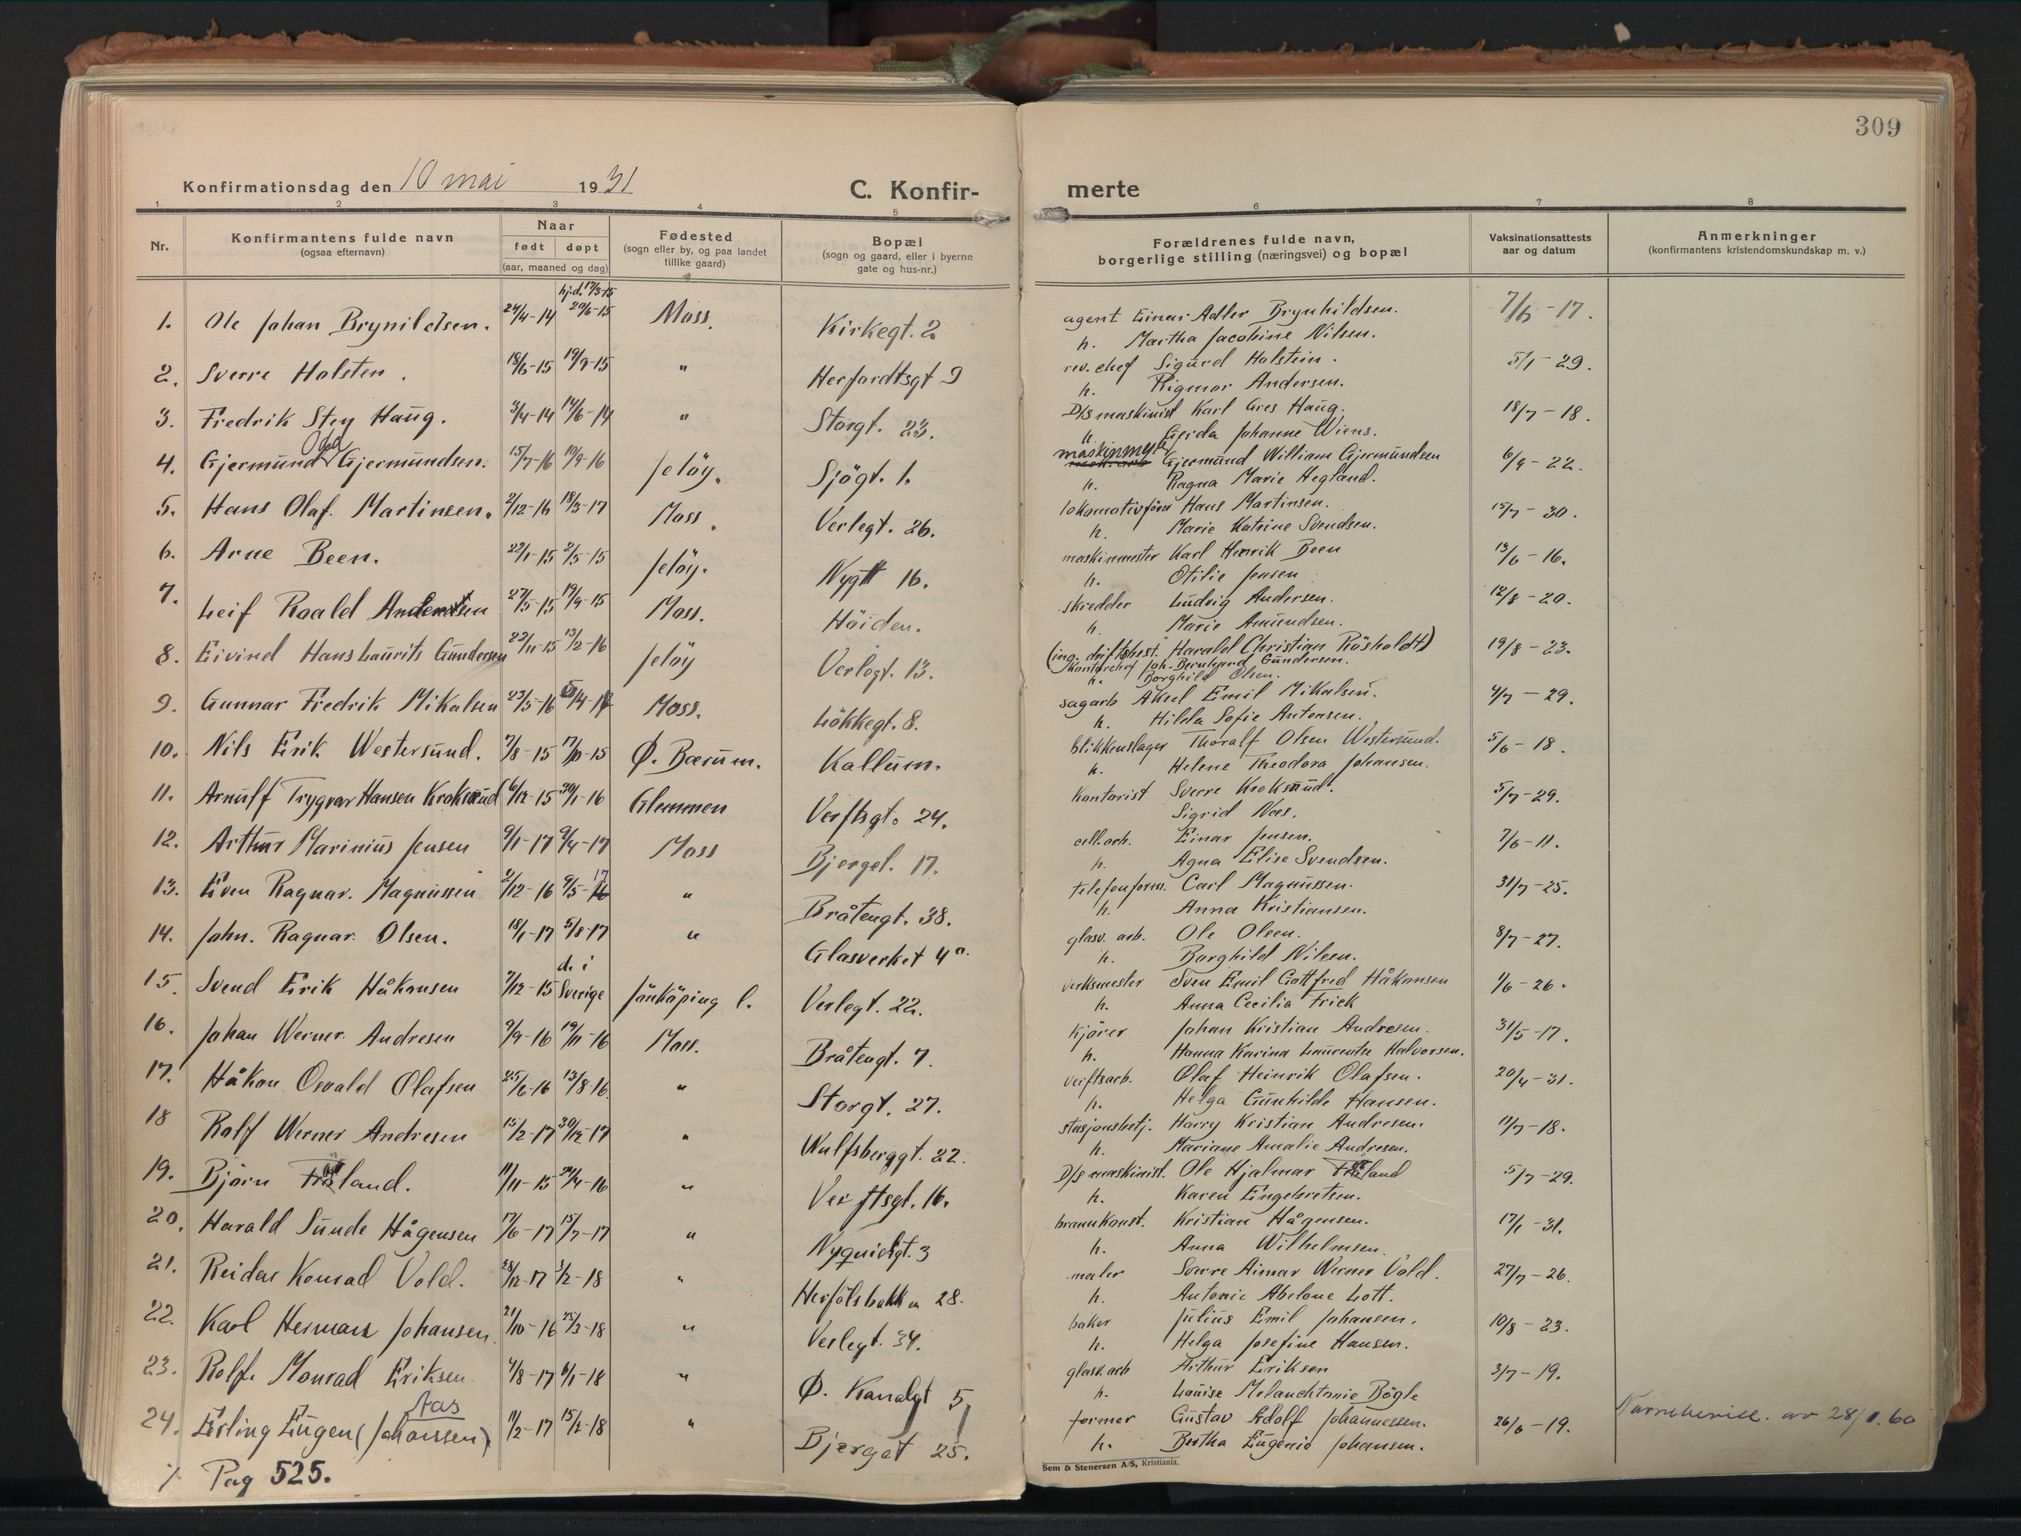 309
Konfirmationsdag den 10 mai 1931 C. Konfir-merte
1 2 3 4 5 6 7 8
Nr.
Konfirmantens fulde navn
(ogsaa efternavn)
Naar
født døpt
(aar, maaned og dag)
Fødested
(sogn eller by, og paa landet
tillike gaard)
Bopæl
(sogn og gaard, eller i byerne
gate og hus-nr.)
Forældrenes fulde navn,
borgerlige stilling (næringsvei) og bopæl
Vaksinationsattests
aar og datum
Anmerkninger
(konfirmantens kristendomskundskap m. v.)
hj.d. 17/3-15
1. Ole Johan Brynildsen. 24/4-14 20/6-15 Moss. Kirkegt. 2 agent Einar Adler Brynhildsen. 7/6-17.
h. Martha Jacobine Nilsen.
2. Sverre Holsten. 18/6-15 19/9-15 " Herfordtsgt 9 rev. chef Sigurd Holstein. 5/1-29.
h. Rigmor Andersen.
3. Fredrik Stey Haug. 3/4-14 14/6-14 " Storgt. 23. D/s maskinist Karl Gres Haug. 18/7-18.
h. Gerda Johanne Wiens.
4. Gjermund Odd Gjermundsen. 15/7-16 10/9-16 Jeløy. Sjögt. 1. maskinmest. Gjermund William Gjermundsen 6/9-22.
h. Ragna Marie Hegland.
5. Hans Olaf Martinsen. 2/12-16 18/3-17 Moss. Verlegt. 26. lokomotivförer Hans Martinsen. 15/7-30.
h. Marie Katrine Svendsen.
6. Arne Been. 22/1-15 2/5-15 Jeløy. Nygt 16. maskinmester Karl Henrik Been 13/6-16.
h. Otilie Jensen
7. Leif Roald Andersen 27/5-15 19/9-15 Moss. Höiden. skredder Ludvig Andersen. 12/8-20.
h. Marie Amundsen.
8. Eivind Hans Laurits Gundersen 22/11-15 13/2-16 Jeløy Verlegt. 13. (ing. driftsbest. Harald Christian Rösholdt) 19/8-23.
Kontorchef Joh. Bernhard Gundersen.
h. Borghild Olsen.
9. Gunnar Fredrik Mikalsen 23/5-16 Moss. Lökkegt. 8. sagarb Aksel Emil Mikalsen. 4/7-29.
h. Hilda Sofie Antonsen.
10. Nils Erik Westersund. 7/8-15 17/10-15 Ø. Bærum. Kallum. blikkenslager Thoralf Olsen Westersund. 5/6-18.
h. Helene Theodora Johansen.
11. Arnulf Trygvar Hansen Kroksrud 6/12-15 30/1-16 Glemmen Verftsgt. 24. Kontorist Sverre Kroksrud. 5/7-29.
Sigrid Næs.
12. Arthur Marinius Jensen 9/1-17 9/4-17 Moss Bjerget. 17. cell.arb. Einar Jensen. 7/6-11.
h. Agna Elise Svendsen.
13. Even Ragnar. Magnussen 2/12-16 9/5-17 " Bråtengt. 38. telefonform. Carl Magnussen. 31/7-25.
h. Anna Kristiansen.
14. John. Ragnar. Olsen. 18/1-17 5/8-17 " Glasverket 4a. glasv. arb. Ole Olsen. 8/7-27.
h. Borghild Nilsen.
15. Svend Erik Håkonsen 7/12-15 d. i Sverige Jönköping l. Verlegt. 22. verksmester Sven Emil Gottfred Håkonsen 1/6-26.
h. Anna Cecilia Frick
16. Johan Werner. Andresen 9/9-16 19/11-16 Moss. Bråtengt. 7. Kjörer Johan Kristian Andresen. 31/5-17.
h. Hanna Karina Laurentse Halvorsen.
17. Håkon Osvald Olafsen 25/6-16 13/8-16. " Storgt. 27. verftsarb. Olaf Heinrik Olafsen. 20/4-31.
h. Helga Gunhilde Hansen.
18 Rolf Werner Andresen 15/2-17 30/12-17 " Wulfsberggt. 22. stasjonsbetj. Harry Kristian Andresen. 11/7-18.
h. Mariane Amalie Andresen.
19. Bjørn Frøland. 11/11-15 24/4-16 " Verftsgt. 16. D/s maskinist. Ole Hjalmar Frøland 5/7-29.
h. Karen Engebretsen.
20. Harald Sunde Hågensen 17/6-17 15/7-17 " Nyquistgt. 3 brannkonst. Kristian Hågensen. 17/1-31.
h. Anna Wilhelmsen.
21. Reidar Konrad Vold. 28/12-17 3/2-18 " Herfölsbakken 28. maler Sverre Aimar Werner Vold. 27/7-26.
h. Antonie Abelone Lott.
22. Karl Herman Johansen. 21/10-16 25/3-18 " Verlegt. 34. baker Julius Emil Johansen. 10/8-23.
h. Helga Josefine Hansen.
23. Rolf. Monrad Eriksen. 4/8-17 6/1-18 " Ø. Kanalgt 5 glasv. arb Arthur Eriksen 3/7-19.
h. Louise Melanchtonie Bögle
24. Erling Eugen (Johanssen) Aas 11/2-17 15/2-18 " Bjerget 25. former Gustav Adolf Johannessen. 26/6-19. Navnebevill. av 28/1.60
h. Bertha Eugenie Johansen.
Pag 525.
Sem & Stenersen A/S, Kristiania.